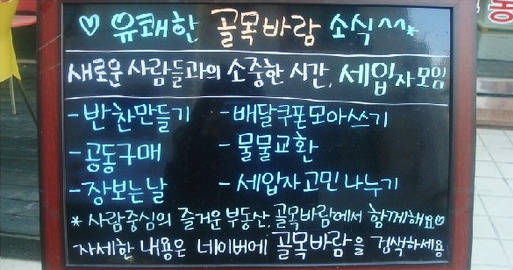 ♡ 유쾌한 골목바람 소식^^*
새로운 사람들과의 소중한 시간, 세입자모임
- 반찬만들기 - 배달쿠폰모아쓰기
- 공동구매 - 물물교환
- 장보는날 - 세입자고민 나누기
* 사람중심의 즐거운 부동산, 골목바람에서 함께해요♡
자세한 내용은 네이버에 골목바람을 검색하세용
동